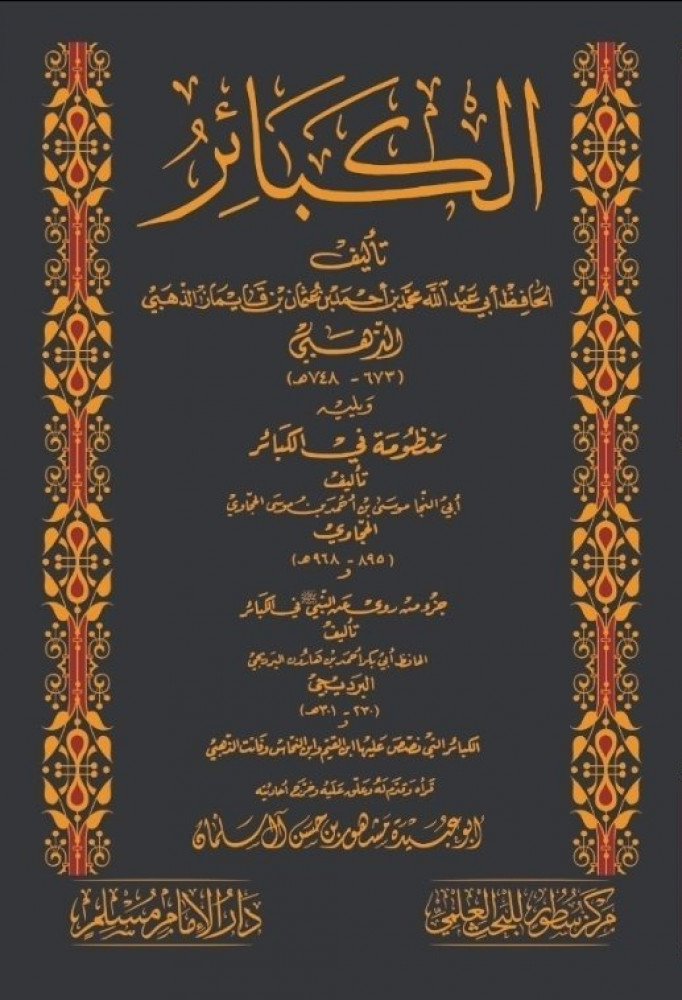 الكَبَائِرُ
تأليف
الحافظ أبي عبد الله محمد بن أحمد بن عثمان بن قايماز الذهبي
الذهبي
(٦٧٣ - ٧٤٨هـ)
ويليه
منظومة في الكبائر
تأليف
أبي النجا موسى بن أحمد بن موسى الحجاوي
الحجاوي
(٨٩٥ - ٩٦٨هـ)
و
جزء من روى عن النبي ﷺ في الكبائر
تأليف
الحافظ أبي بكر أحمد بن هارون البرديجي
البرديجي
(٢٣٠ - ٣٠١هـ)
و
الكبائر التي نصص عليها ابن القيم وابن النحاس وفاتت الذهبي
قرأه وقدم له وعلق عليه وخرج أحاديثه
أبو عبيدة مشهور بن حسن آل سلمان
مركز سطور للبحث العلمي
دار الإمام مسلم